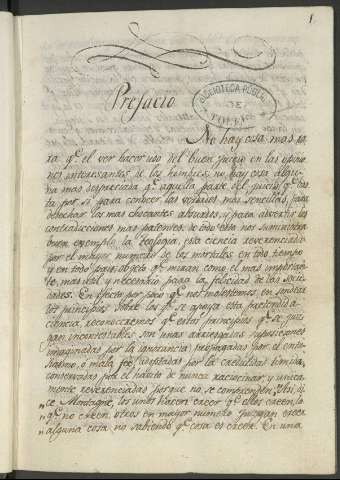 1
Prefacio
BIBLIOTECA PÚBLICA
DE
TOLEDO
No hay cosa mas ra-
ra q.e el ver hacer uso del buen juicio en las opinio-
nes interesantes à los hombres: no hay cosa algu-
na mas despreciada q.e aquella parte del juicio q.e bas-
ta por sí para conocer las verdades mas sencillas, para
desechar los mas chocantes absurdos, y para advertir las
contradicciones mas patentes: de todo esto nos suministra
buen exemplo la teología, esta ciencia reverenciada
por el mayor numero de los mortales en todo tiempo
y en todo pais, objeto q.e miran como el mas importan-
te, mas util y necesario para la felicidad de las socie-
dades. En efecto por poco q.e nos molestemos en sondear
los principios sobre los q.e se apoya esta pretendida
ciencia, reconoceremos q.e estos principios q.e se juz-
gan incontestables son unas suposiciones
imaginadas por la ignorancia, propagadas por el entu-
siasmo, o mala fee, adoptadas por la credulidad timida,
conservadas por el habito de nunca raciocinar, y unica-
mente reverenciadas porque no se comprenden. "Asi, di-
" ce Montagne, los unos hacen creer q.e ellos creen, lo
" q.e no creen, otros en mayor numero juzgan creer
" alguna cosa no sabiendo q.e cosa es creer. En una